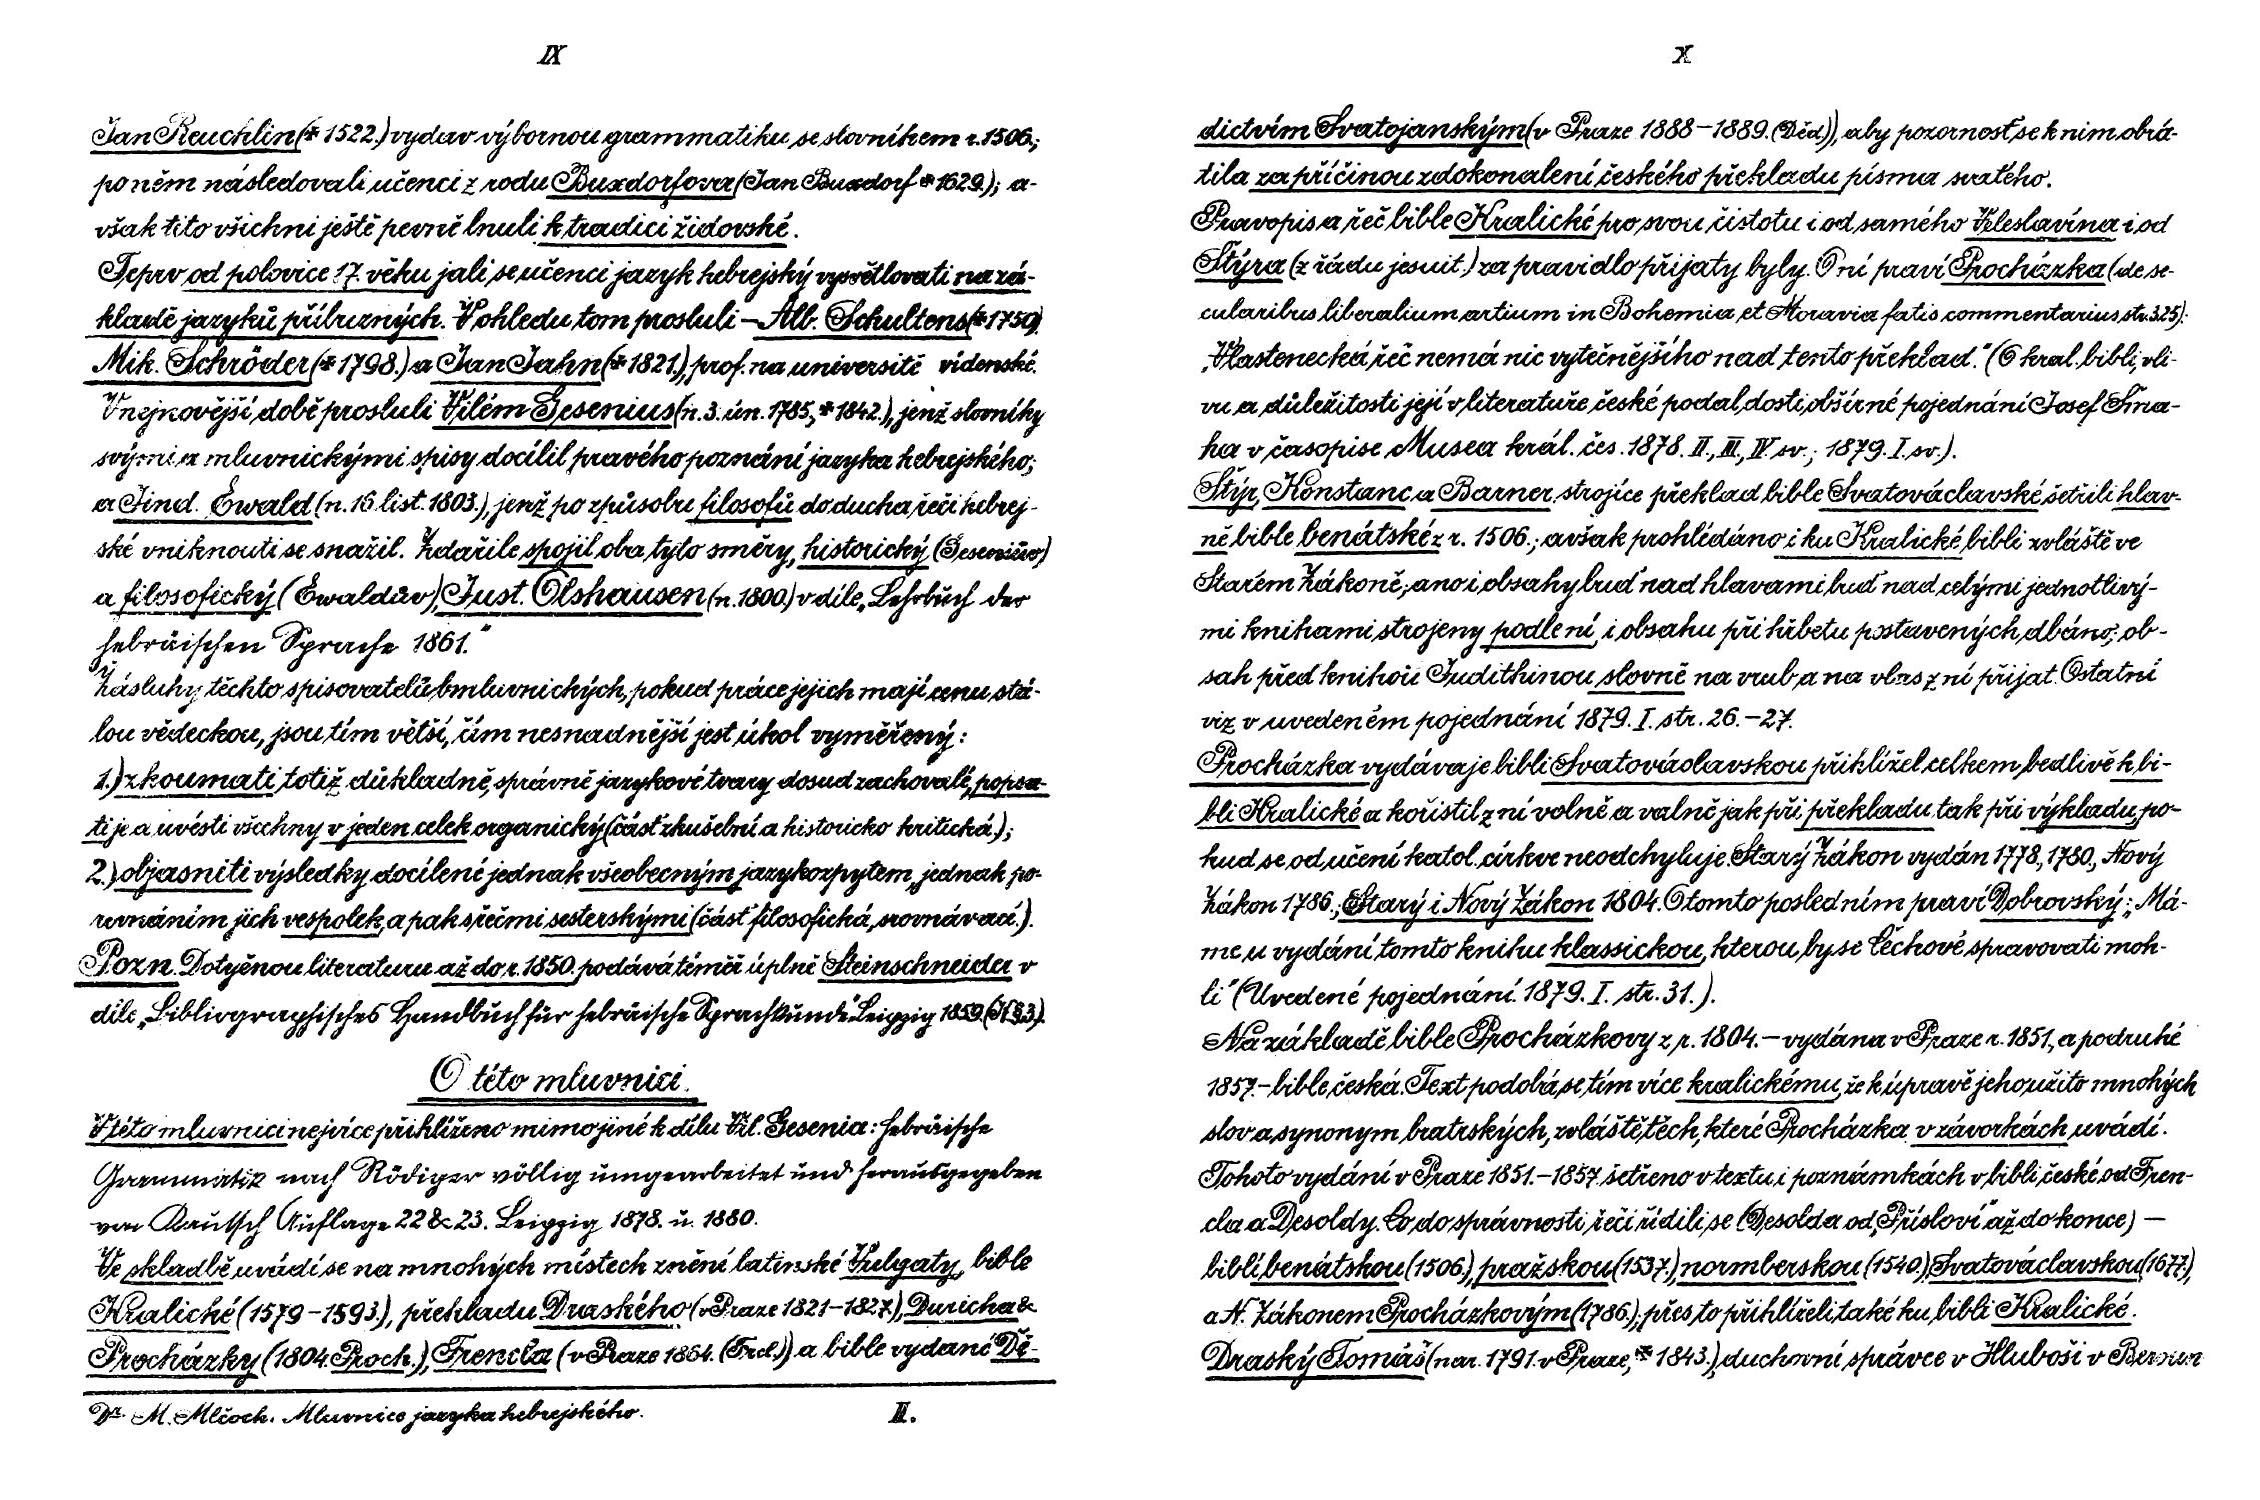 IX
Jan Reuchlin (* 1522.) vydav výbornou grammatiku se slovníkem r. 1506.;
po něm následovali učenci z rodu Buxdorfova (Jan Buxdorf * 1629.); a-
však tito všichni ještě pevně lnuli k tradici židovské.
Teprv od polovice 17. věku jali se učenci jazyk hebrejský vysvětlovati na zá-
kladě jazyků příbuzných. V ohledu tom prosluli – Alb. Schultens (* 1750)
Mik. Schröder (* 1798.) a Jan Jahn (* 1821.), prof. na universitě vídenské.
V nejnovější době prosluli Vilém Gesenius (n. 3. ún. 1785, * 1842.), jenž slovníky
svými a mluvnickými spisy docílil pravého poznání jazyka hebrejského;
a Jind. Ewald (n. 16 list. 1803.), jenž po způsobu filosofů do ducha řeči hebrej-
ské vniknouti se snažil. Zdařile spojil oba tyto směry, historický (Geseniův)
a filosofický (Ewaldův), Just. Olshausen (n. 1800.) v díle „Lehrbuch der
hebräischen Sprache 1861."
Zásluhy těchto spisovatelů bmluvnických, pokud práce jejich mají cenu stá-
lou vědeckou, jsou tím větší, čím nesnadnější jest úkol vyměřený:
1.) zkoumati totiž důkladně, správně jazykové tvary dosud zachovalé, popsa-
ti je a uvésti všechny v jeden celek organický (část zkušební a historicko kritická.);
2.) objasniti výsledky docílené jednak všeobecným jazykozpytem, jednak po-
rovnáním jich vespolek, a pak s řečmi sesterskými (část filosofická, srovnávací.).
Pozn. Dotyčnou literaturu až do r. 1850. podává téměř úplně Steinschneider v
díle „Bibliographisches Handbuch für hebräische Sprachkunde" Leipzig 1859. (K §3.)
O této mluvnici.
V této mluvnici nejvíce přihlíženo mimo jiné k dílu Vil. Gesenia: Hebräische
Grammatik nach Rödiger völlig umgearbeitet und herausgegeben
von Kautzsch Auflage 22 & 23. Leipzig 1878. u. 1880.
Ve skladbě uvádí se na mnohých místech znění latinské Vulgaty, bible
Kralické (1579–1593.), překladu Draského (v Praze 1821–1827.), Duricha &
Procházky (1804. Proch.), Frencla (v Praze 1864. (Frcl.)) a bible vydané Dě-
Dr. M. Mlčoch. Mluvnice jazyka hebrejského. II.
X
dictvím Svatojanským (v Praze 1888–1889. (Děd.)), aby pozornost se k nim obrá-
tila za příčinou zdokonalení českého překladu písma svatého.
Pravopis a řeč bible Kralické pro svou čistotu i od samého Veleslavína i od
Štýra (z řádu jesuit.) za pravidlo přijaty byly. O ní praví Procházka (de se-
cularibus liberalium artium in Bohemia et Moravia fatis commentarius str. 325):
„Vlastenecká řeč nemá nic vytečnějšího nad tento překlad." (O kral. bibli, vli-
vu a důležitosti její v literatuře české podal dosti obšírné pojednání Josef Šma-
ha v časopise Musea král. čes. 1878. II., III., IV sv.; 1879. I. sv.).
Štýr, Konstanc a Barner strojíce překlad bible Svatováclavské šetřili hlav-
ně bible benátské z r. 1506.; avšak prohlédáno i ku Kralické bibli zvláště ve
Starém Zákoně; ano i obsahy buď nad hlavami buď nad celými jednotlivý-
mi knihami strojeny podle ní, i obsahu při hřbetu postavených dbáno; ob-
sah před knihou Judithinou slovně na vrub a na vlas z ní přijat. Ostatní
viz v uvedeném pojednání 1879. I. str. 26.–27.
Procházka vydávaje bibli Svatováclavskou přihlížel celkem bedlivě k bi-
bli Kralické a kořistil z ní volně a valně jak při překladu tak při výkladu, po-
kud se od učení katol. církve neodchyluje. Starý Zákon vydán 1778, 1780, Nový
Zákon 1786.; Starý i Nový Zákon 1804. O tomto posledním praví Dobrovský: „Má-
me u vydání tomto knihu klassickou, kterou by se Čechové spravovati moh-
li" (Uvedené pojednání 1879. I. str. 31.).
Na základě bible Procházkovy z r. 1804. – vydána v Praze r. 1851, a podruhé
1857.– bible česká. Text podobá se tím více kralickému, že k úpravě jeho užito mnohých
slov a synonym bratrských, zvláště těch, které Procházka v závorkách uvádí.
Tohoto vydání v Praze 1851.–1857. šetřeno v textu i poznámkách v bibli české od Fren-
cla a Desoldy. Co do správnosti řeči řídili se (Desolda od „Přísloví" až do konce) –
biblí benátskou (1506.), pražskou (1537.), normberskou (1540.), Svatováclavskou (1677.),
a N. Zákonem Procházkovým (1786.); přes to přihlíželi také ku bibli Kralické.
Draský Tomáš (nar. 1791. v Praze, * 1843.), duchovní správce v Hluboši v Beroun